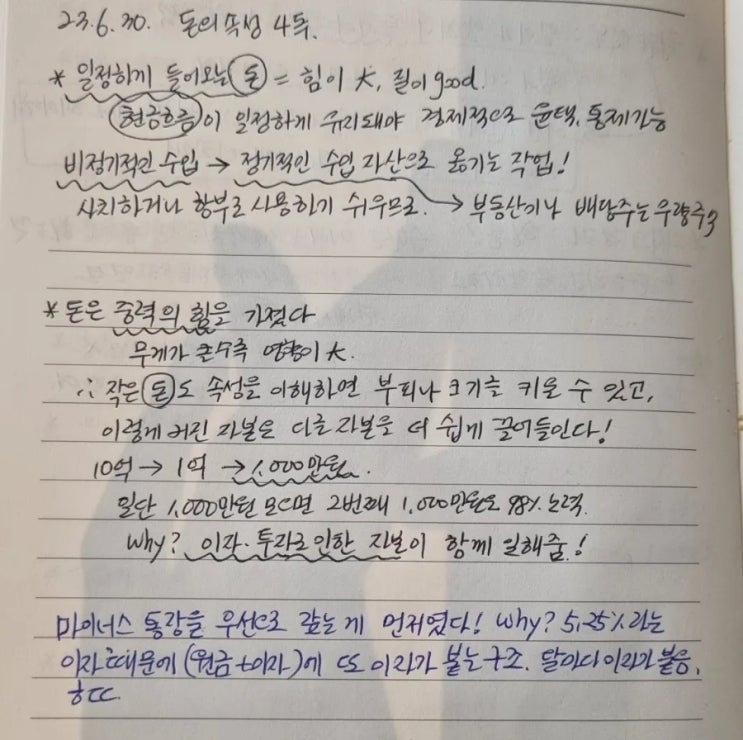 23.6.30. 돈의 속성 4독.
* 일정하게 들어오는 돈 = 힘이 大, 질이 good.
현금흐름이 일정하게 유리돼야 경제적으로 윤택, 통제가능
비정기적인 수입 → 정기적인 수입 자산으로 옮기는 작업!
사치하거나 함부로 사용하기 쉬우므로. → 부동산기나 배당주는 우량주
* 돈은 중력의 힘을 가졌다
무게가 클수록 영향이 大.
∴ 작은 돈도 속성을 이해하면 부피나 크기를 키울 수 있고,
이렇게 커진 자본은 다른 자본을 더 쉽게 끌어들인다!
10억 → 1억 → 1,000만원.
일단 1,000만원 모으면 2번째 1,000만원은 98% 노력.
why? 이자·투자로 인한 자본이 함께 일해줌!
마이너스 통장을 우선으로 갚는게 먼저였다! why? 5.25%라는
이자 때문에 (원금+이자)에 또 이자가 붙는 구조. 달마다 이자가 붙음.
ㅎㄷㄷ